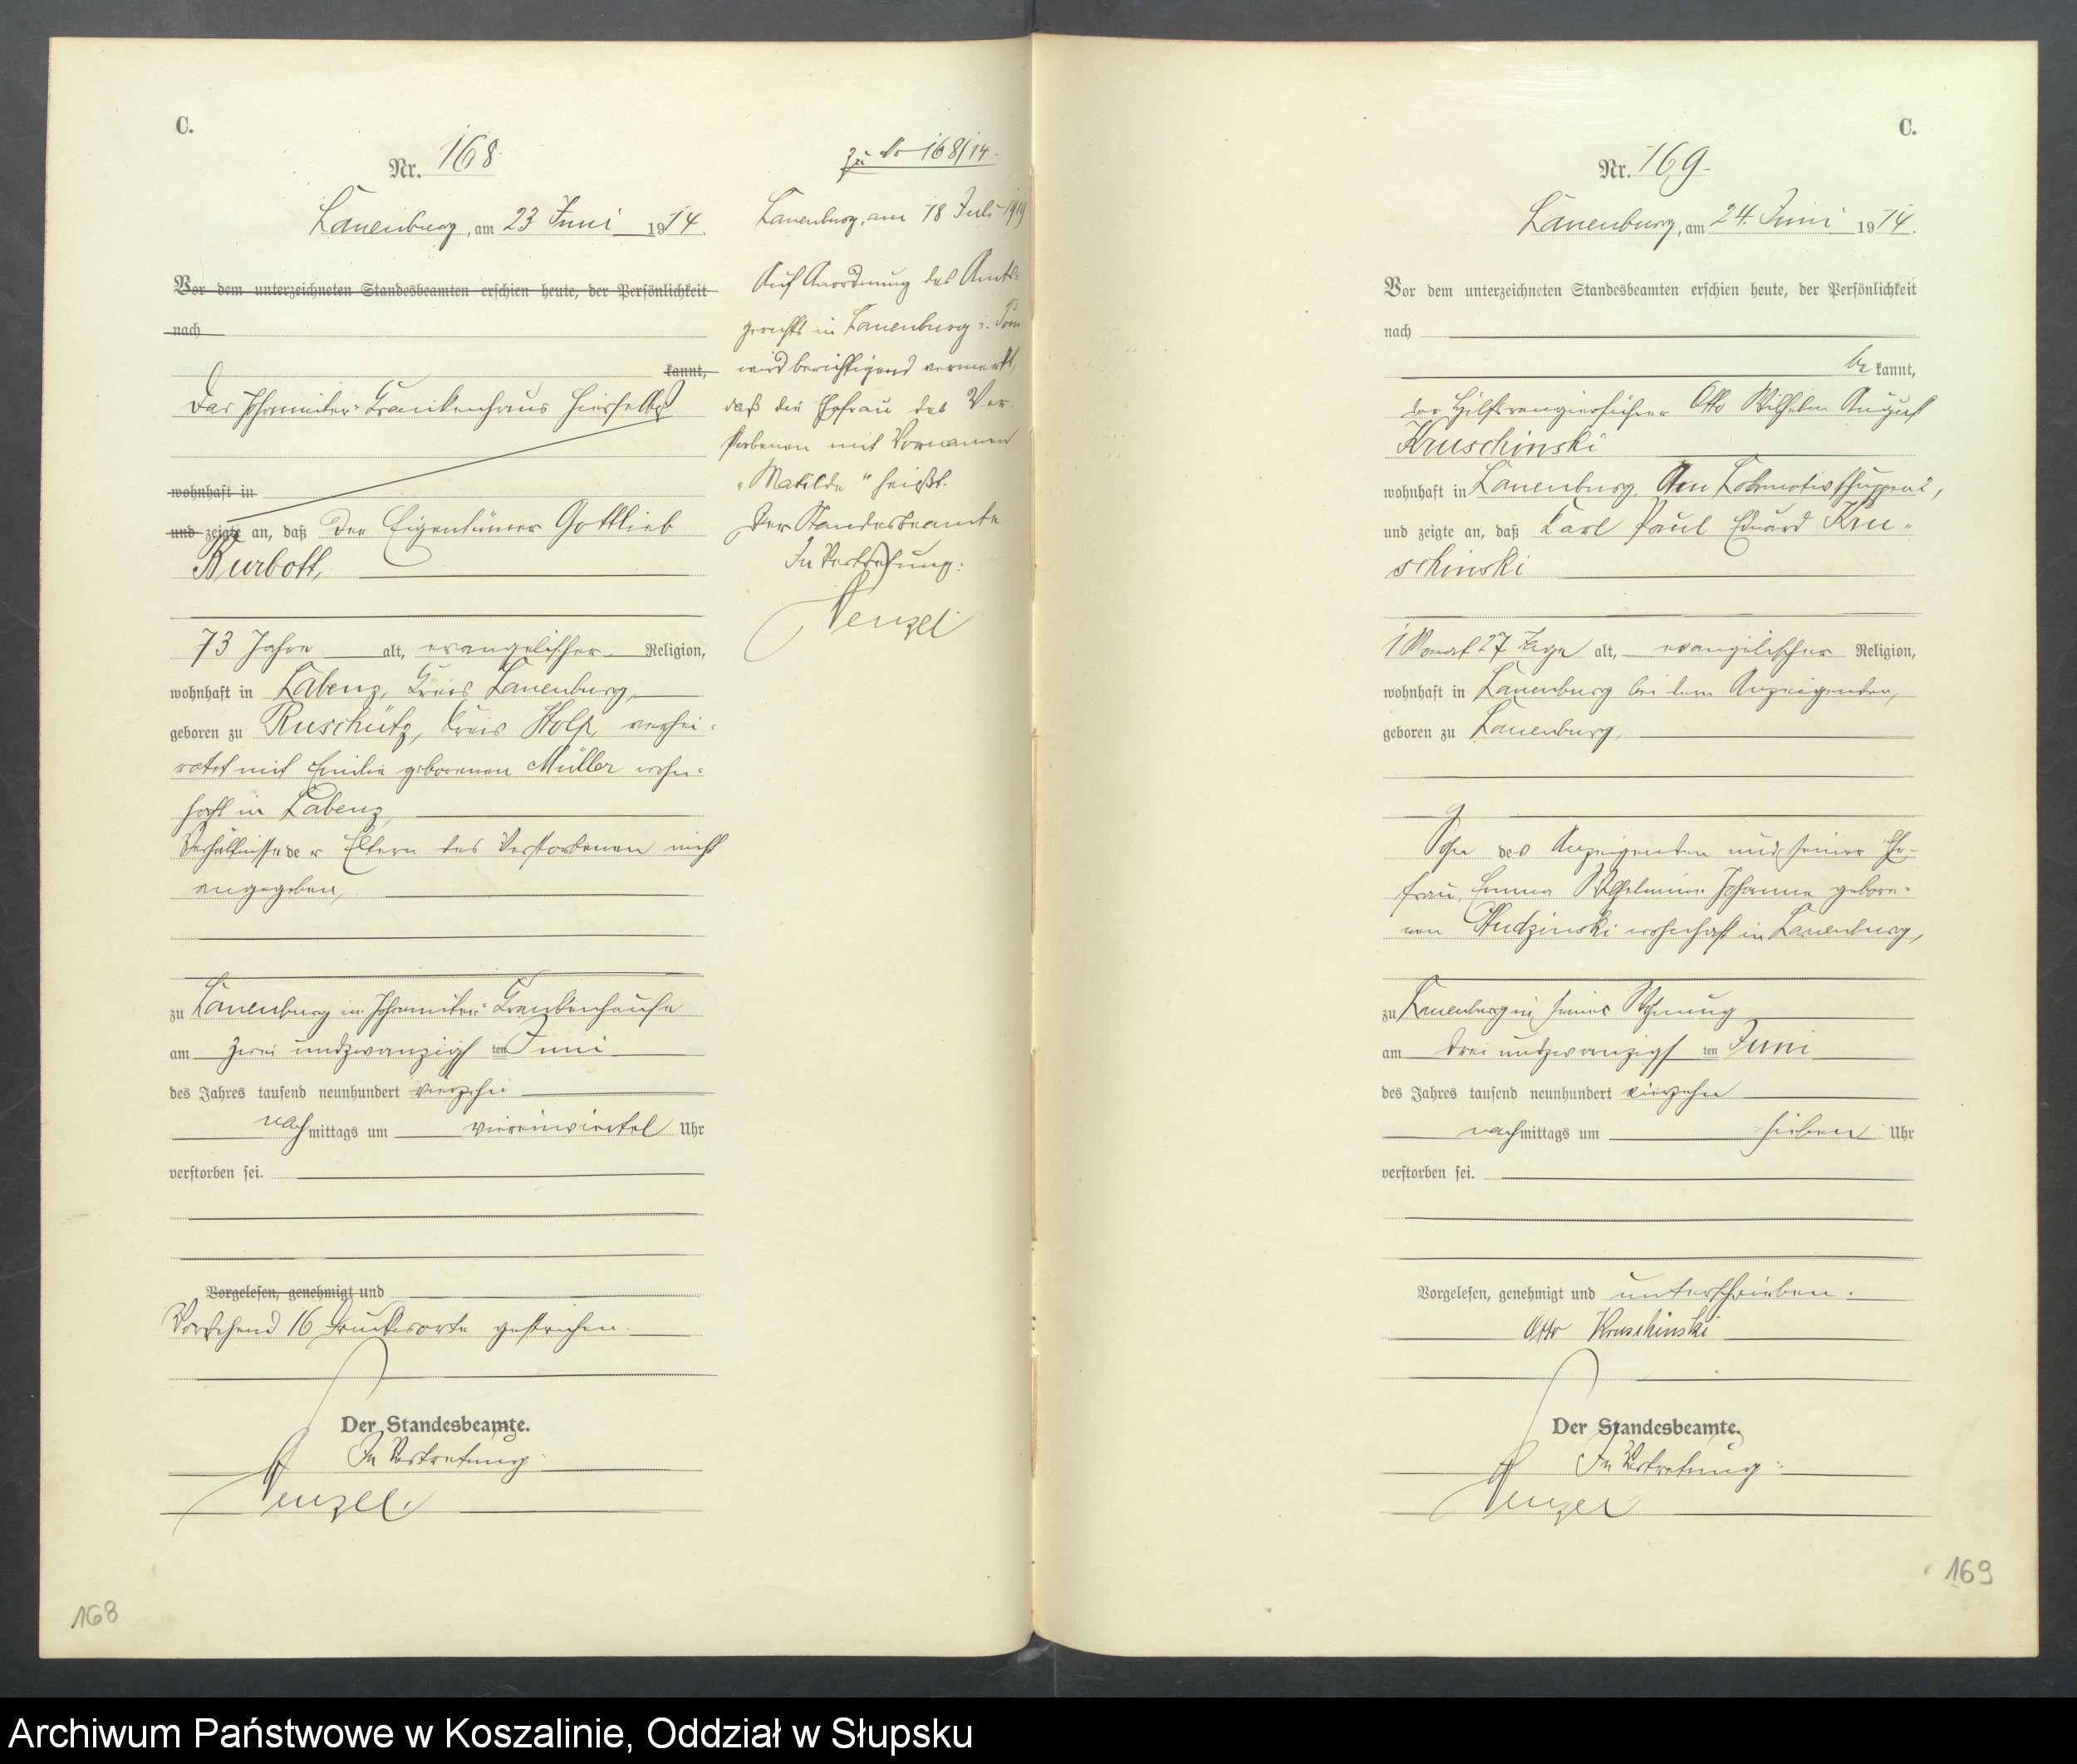 C.
Nr. 168.
Lauenburg, am 23 Juni 1914.
Vor dem unterzeichneten Standesbeamten erschien heute, der Persönlichkeit
nach
kannt,
das Johanniter-Krankenhaus hierselbst
wohnhaft in
und zeigte an, daß der Eigentümer Gottlieb
Burbott,
73 Jahre alt, evangelischer Religion,
wohnhaft in Labenz, Kreis Lauenburg,
geboren zu Ruschütz, Kreis Stolp, verhei-
ratet mit Emilie geborenen Müller wohn-
haft in Labenz,
Verhältnisse der Eltern des Verstorbenen nicht
angegeben,
zu Lauenburg im Johanniter-Krankenhause
am zwei und zwanzigsten Juni
des Jahres tausend neunhundert vierzehn
nachmittags um viereinviertel Uhr
verstorben sei.
Vorgelesen, genehmigt und
Vorstehend 16 Druckworte gestrichen.
Der Standesbeamte.
In Vertretung:
Wenzel.
168
zu No 168/14.
Lauenburg, am 18 Juli 1919
Auf Anordnung des Amts-
gerichts in Lauenburg i. Pom
wird berichtigend vermerkt,
daß die Ehefrau des Ver-
storbenen mit Vornamen
"Matilde" heißt.
Der Standesbeamte
In Vertretung:
Wenzel
C.
Nr. 169.
Lauenburg, am 24. Juni 1914.
Vor dem unterzeichneten Standesbeamten erschien heute, der Persönlichkeit
nach
be kannt,
der Hilfsrangierführer Otto Wilhelm August
Kruschinski
wohnhaft in Lauenburg, Am Lokomotivschuppen 2,
und zeigte an, daß Karl Paul Eduard Kru-
schinski
1 Monat 27 Tage alt, evangelischer Religion,
wohnhaft in Lauenburg bei dem Anzeigenden,
geboren zu Lauenburg,
Sohn des Anzeigenden und seiner Ehe-
frau, Emma Wilhelmine Johanna gebore-
nen Studzinski wohnhaft in Lauenburg,
zu Lauenburg in seiner Wohnung
am drei und zwanzigsten Juni
des Jahres tausend neunhundert vierzehn
nachmittags um sieben Uhr
verstorben sei.
Vorgelesen, genehmigt und unterschrieben.
Otto Kruschinski
Der Standesbeamte.
In Vertretung:
Wenzel
169
Archiwum Państwowe w Koszalinie, Oddział w Słupsku